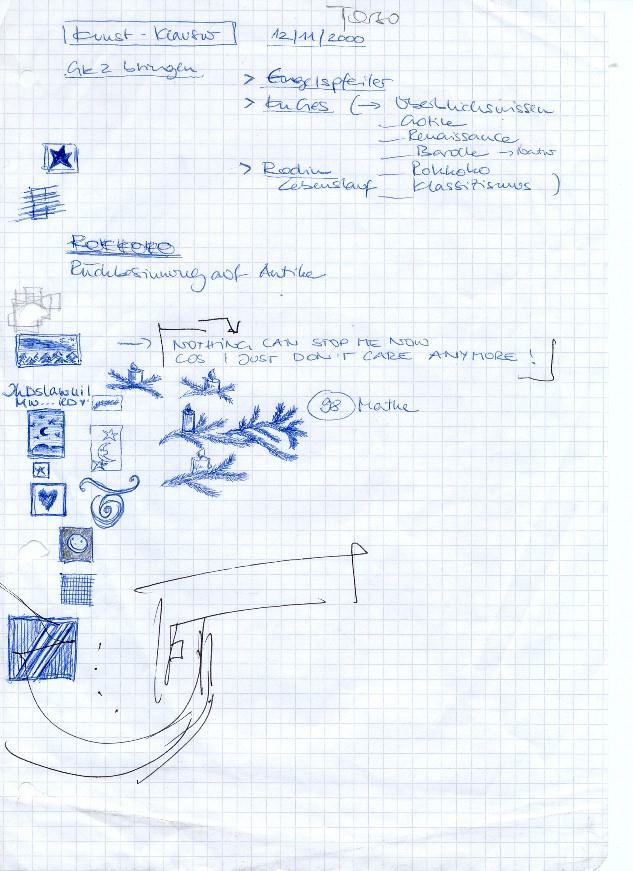 TORO
Kunst-Klausur 12/11/2000
GK2 bringen
> Engelspfeiler
> KuGes (→ Überblickswissen
Gotik
Renaissance
Barock → Natur
> Rodin Rokkoko
Lebenslauf Klassizismus )
ROKKOKO
Rückbesinnung auf Antike
→ NOTHING CAN STOP ME NOW
COS I JUST DON'T CARE ANYMORE !
98 Mathe